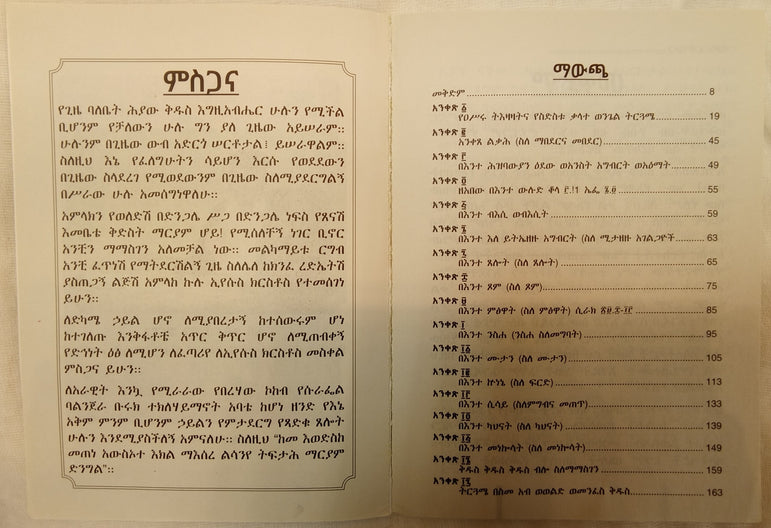 ምስጋና
የጊዜ ባለቤት ሕያው ቅዱስ እግዚአብሔር ሁሉን የሚችል
ቢሆንም የቻለውን ሁሉ ግን ያለ ጊዜው አይሠራም፡፡
ሁሉንም በጊዜው ውብ አድርጎ ሠርቶታል፤ ይሠራዋልም፡፡
ስለዚህ እኔ የፈለግሁትን ሳይሆን እርሱ የወደደውን
በጊዜው ስላደረገ የሚወደውንም በጊዜው ስለሚያደርግልኝ
በሥራው ሁሉ አመሰግነዋለሁ፡፡
አምላክን የወለድሽ በድንጋሌ ሥጋ በድንጋሌ ነፍስ የጸናሽ
እመቤቴ ቅድስት ማርያም ሆይ! የሚሰለቸኝ ነገር ቢኖር
አንቺን ማማስገን አለመቻል ነው፡፡ መልካማይቱ ርግብ
አንቺ ፈጥነሽ የማትደርሽልኝ ጊዜ ስለሌለ ከክንፈ ረድኤትሽ
ያስጠጋኝ ልጅሽ አምላከ ኩሉ ኢየሱስ ክርስቶስ የተመሰገነ
ይሁን፡፡
ለድካሜ ኃይል ሆኖ ለሚያበረታኝ ከተሰውሩም ሆነ
ከተገለጡ እንቅፋቶቼ አጥር ቅጥር ሆኖ ለሚጠብቀኝ
የድኅነት ዕፅ ለሚሆን ለፈጣሪየ ለኢየሱስ ክርስቶስ መስቀል
ምስጋና ይሁን፡፡
ለአራዊት እንኳ የሚራራው የበረሃው ኮከብ የሱራፌል
ባልንጀራ ቡሩክ ተክለሃይማኖት አባቴ ከሆነ ዘንድ የእኔ
አቅም ምንም ቢሆንም ኃይልን የምታደርግ የጻድቁ ጸሎት
ሁሉን እንደሚያስችለኝ አምናለሁ፡፡ ስለዚህ "ከመ እወድስከ
መጠነ አውስኦተ እክል ማእሰረ ልሳንየ ትፍታሕ ማርያም
ድንግል"፡፡
ማውጫ
መቅድም 8
አንቀጽ ፩
የዐሥሩ ትእዛዛትና የስድስቱ ቃላተ ወንጌል ትርጓሜ 19
አንቀጽ ፪
አንቀጸ ልቃሕ (ስለ ማበደርና መበደር) 45
አንቀጽ ፫
በእንተ ሕዝባውያን ዕደው ወአንስት አግብርት ወአዕማት 49
አንቀጽ ፬
ዘአበው በእንተ ውሉድ ቆላ ፫.!1 ኤፌ ፮.፬ 55
አንቀጽ ፭
በእንተ ብእሲ ወብእሲት 59
አንቀጽ ፮
በእንተ እለ ይትኤዘዙ አግብርት (ስለ ሚታዘዙ አገልጋዮች 63
አንቀጽ ፯
በእንተ ጸሎት (ስለ ጸሎት) 65
አንቀጽ ፰
በእንተ ጾም (ስለ ጾም) 75
አንቀጽ ፱
በእንተ ምፅዋት (ስለ ምፅዋት) ሲራክ 85
አንቀጽ ፲
በእንተ ንስሐ (ንስሐ ስለመግባት) 95
አንቀጽ ፲፩
በእንተ ሙታን (ስለ ሙታን) 105
አንቀጽ ፲፪
በእንተ ኵነኔ (ስለ ፍርድ) 113
አንቀጽ ፲፫
በእንተ ሲሳይ (ስለምግብና መጠጥ) 133
አንቀጽ ፲፬
በእንተ ካህናት (ስለ ካህናት) 139
አንቀጽ ፲፭
በእንተ መነኰሳት (ስለ መነኰሳት) 149
አንቀጽ ፲፮
ቅዱስ ቅዱስ ቅዱስ ብሎ ስለማማስገን 159
አንቀጽ ፲፯
ትርጓሜ በስመ አብ ወወልድ ወመንፈስ ቅዱስ 163